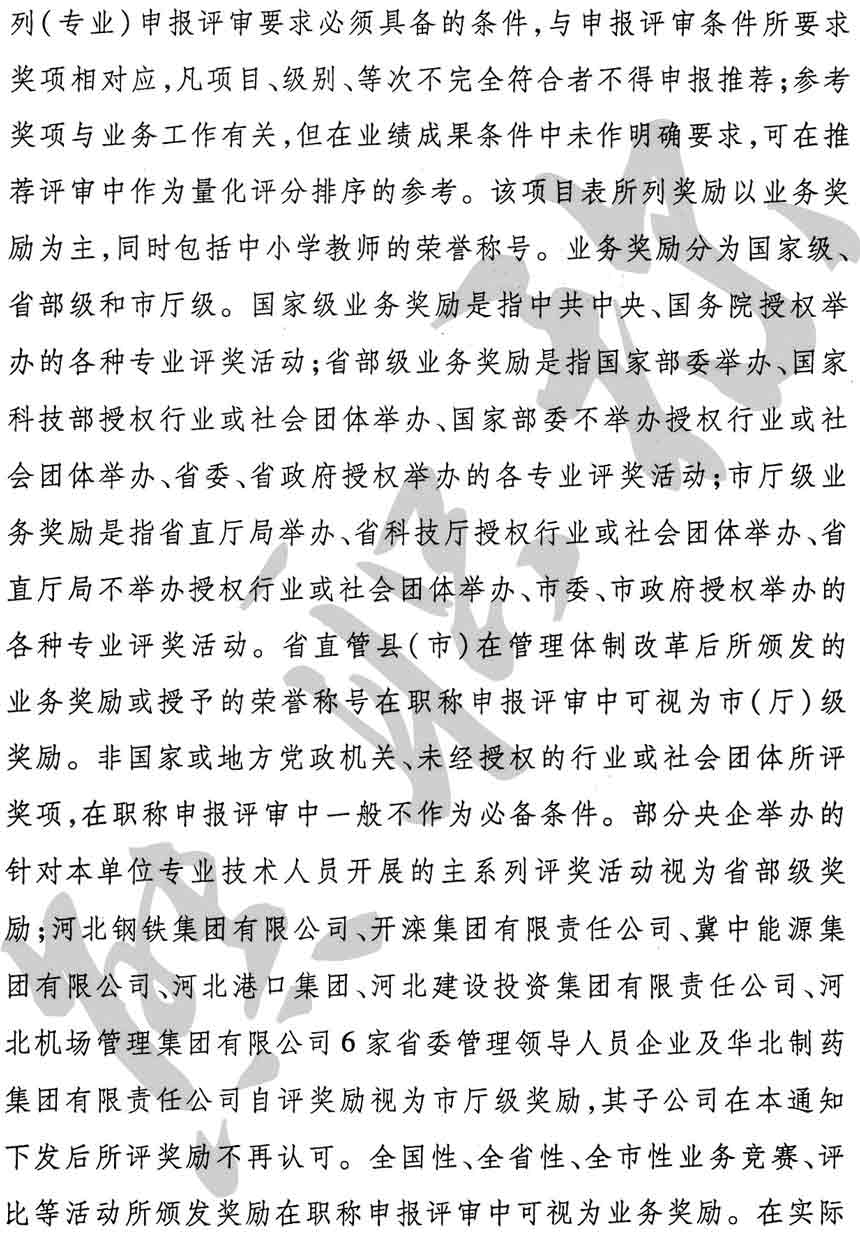 列(专业)申报评审要求必须具备的条件,与申报评审条件所要求
奖项相对应,凡项目、级别、等次不完全符合者不得申报推荐;参考
奖项与业务工作有关,但在业绩成果条件中未作明确要求,可在推
荐评审中作为量化评分排序的参考。该项目表所列奖励以业务奖
励为主,同时包括中小学教师的荣誉称号。业务奖励分为国家级、
省部级和市厅级。国家级业务奖励是指中共中央、国务院授权举
办的各种专业评奖活动;省部级业务奖励是指国家部委举办、国家
科技部授权行业或社会团体举办、国家部委不举办授权行业或社
会团体举办、省委、省政府授权举办的各专业评奖活动;市厅级业
务奖励是指省直厅局举办、省科技厅授权行业或社会团体举办、省
直厅局不举办授权行业或社会团体举办、市委、市政府授权举办的
各种专业评奖活动。省直管县(市)在管理体制改革后所颁发的
业务奖励或授予的荣誉称号在职称申报评审中可视为市(厅)级
奖励。非国家或地方党政机关、未经授权的行业或社会团体所评
奖项,在职称申报评审中一般不作为必备条件。部分央企举办的
针对本单位专业技术人员开展的主系列评奖活动视为省部级奖
励;河北钢铁集团有限公司、开滦集团有限责任公司、冀中能源集
团有限公司、河北港口集团、河北建设投资集团有限责任公司、河
北机场管理集团有限公司6家省委管理领导人员企业及华北制药
集团有限责任公司自评奖励视为市厅级奖励,其子公司在本通知
下发后所评奖励不再认可。全国性、全省性、全市性业务竞赛、评
比等活动所颁发奖励在职称申报评审中可视为业务奖励。在实际